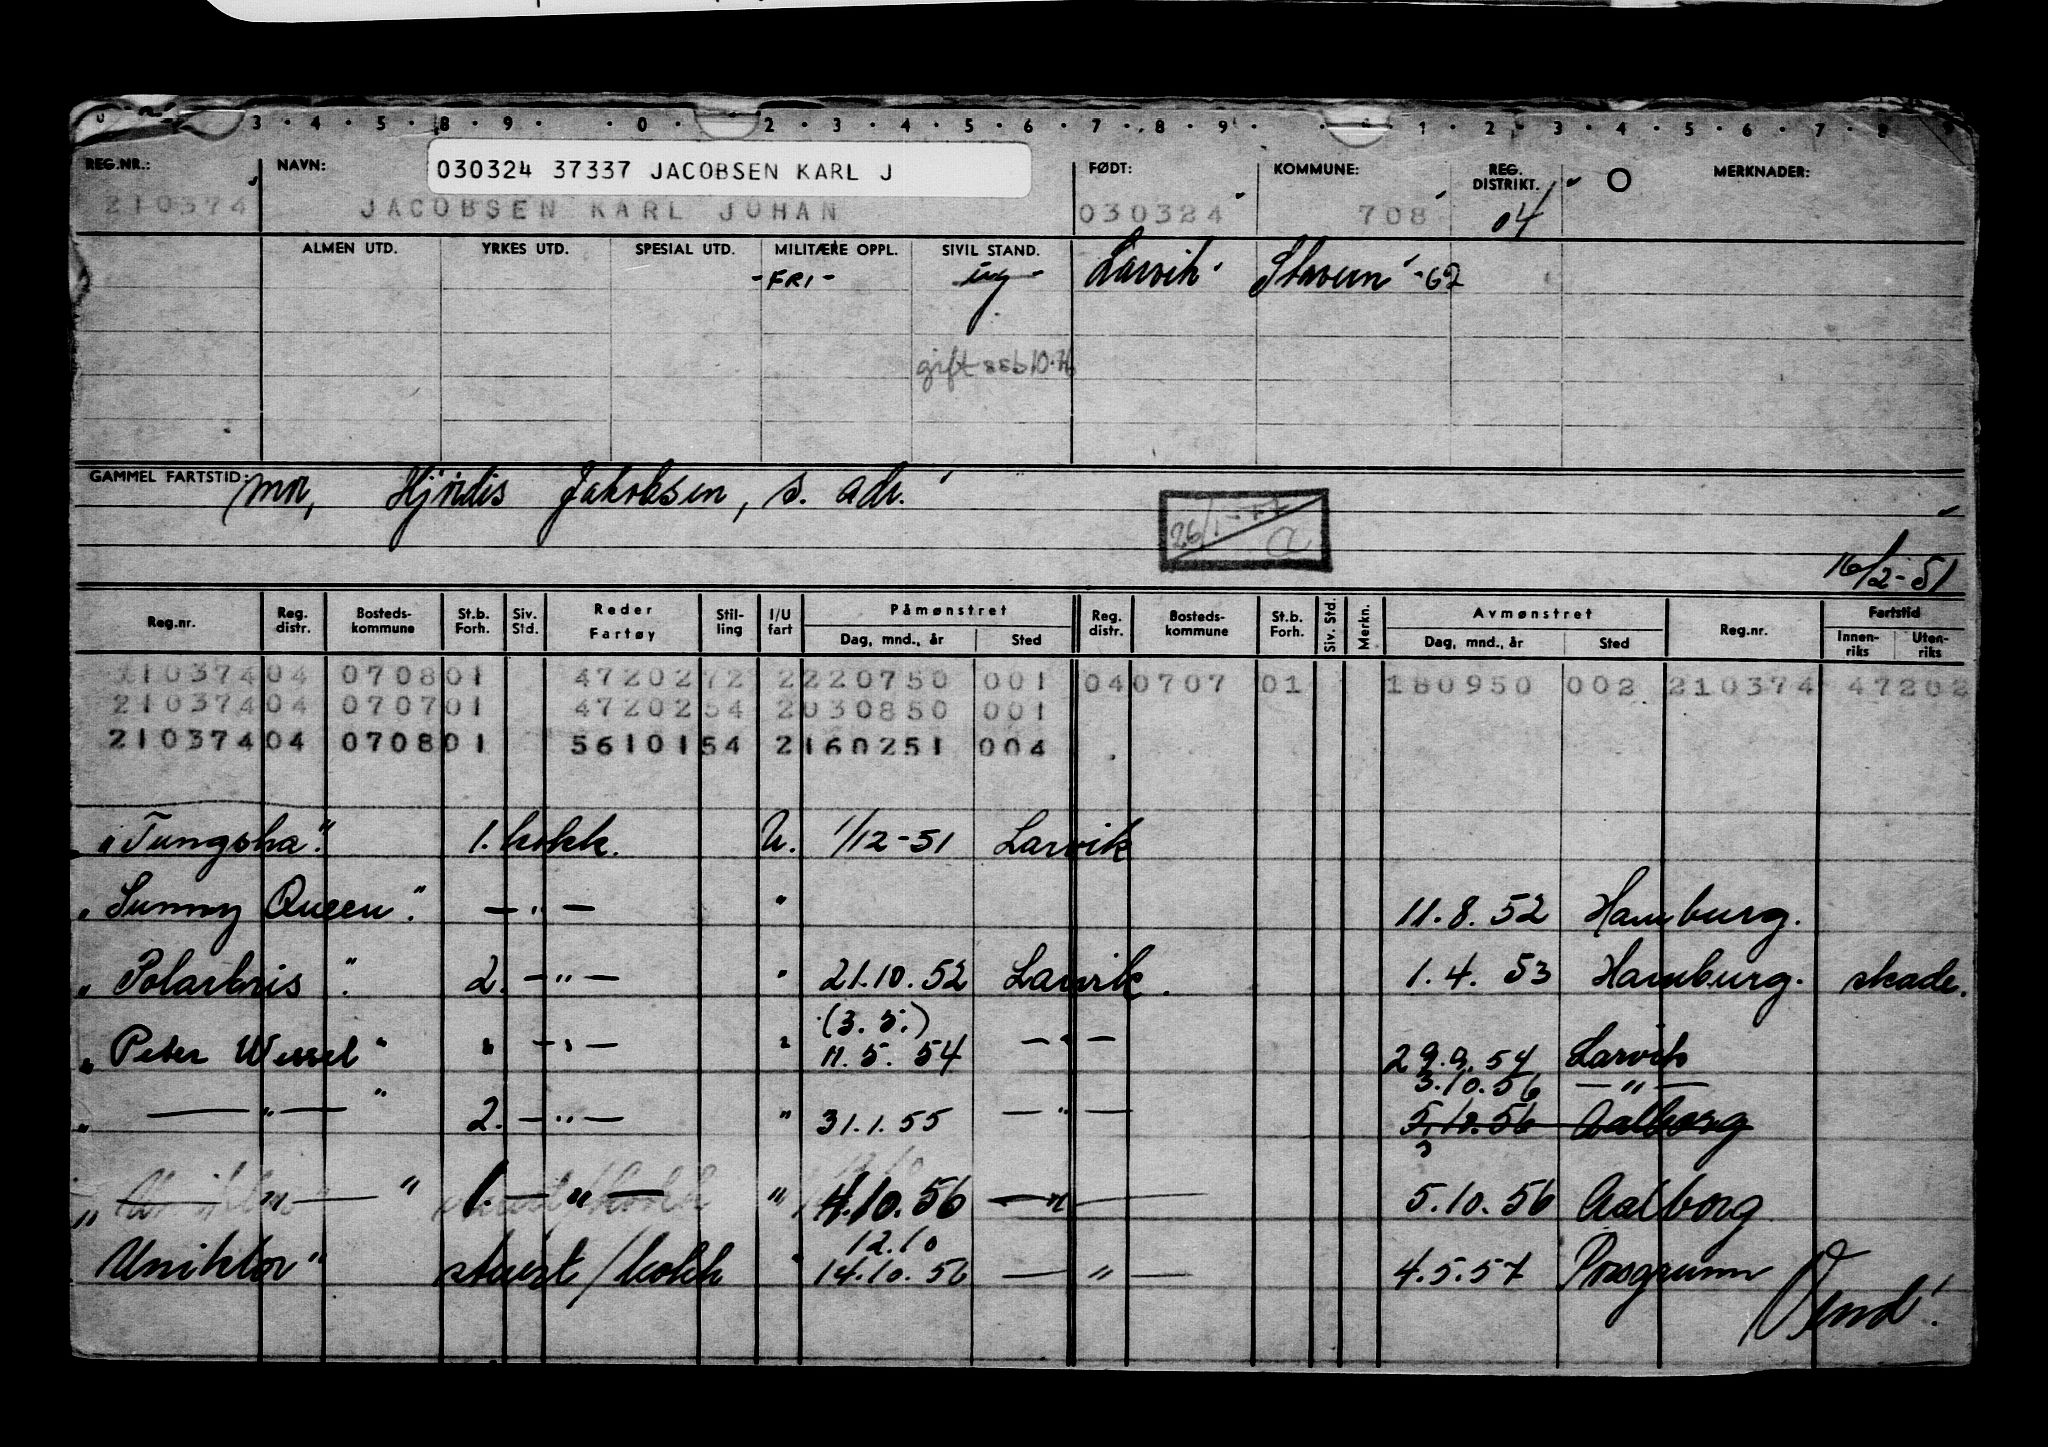 3 · 4 · 5 · 8 · 9 · · 0 · · 2 · 3 · 4 · 5 · 6 · 7 · 8 · 9 · · 1 · 2 · 3 · 4 · 5 · 6 · 7 · 8 9
REG.NR.: NAVN: 030324 37337 JACOBSEN KARL J FØDT: KOMMUNE: REG. DISTRIKT. O MERKNADER:
210374 JACOBSEN KARL JOHAN 030324 708 04
ALMEN UTD. YRKES UTD. SPESIAL UTD. MILITÆRE OPPL. SIVIL STAND.
-FRI- ug Larvik Stavern -62
gift seb 10.76
GAMMEL FARTSTID: mor, Hjördis Jakobsen, s. adr.
26/1-77 a
16/2-51
Reg.nr. Reg. distr. Bosteds-kommune St.b. Forh. Siv. Std. Reder Fartøy Stil-ling I/U fart Påmønstret Dag, mnd., år Sted Reg. distr. Bosteds-kommune St.b. Forh. Siv. Std. Merkn. Avmønstret Dag, mnd., år Sted Reg.nr. Fartstid Innen-riks Uten-riks
21037404 070801 4720272 2220750 001 040707 01 180950 002 210374 47202
21037404 070701 4720254 2030850 001
21037404 070801 5610154 2160251 004
"Tungsha" 1. kokk. U. 1/12-51 Larvik
"Sunny Queen" — " — " 11.8.52 Hamburg.
"Polarbris" 2. — " — " 21.10.52 Larvik. 1.4.53 Hamburg. skade.
(3.5.)
"Peter Wessel" " — " — " 11.5.54 — " — 29.9.54 Larvik
3.10.56 — " —
" — " — " 2. — " — " 31.1.55 — " — 5.10.56 Aalborg
3
" — " — " 1. — " — " 4.10.56 — " — 5.10.56 Aalborg
12.10
Uniktor" stuert/kokk " 14.10.56 — " — 4.5.57 Porsgrunn
Vend!